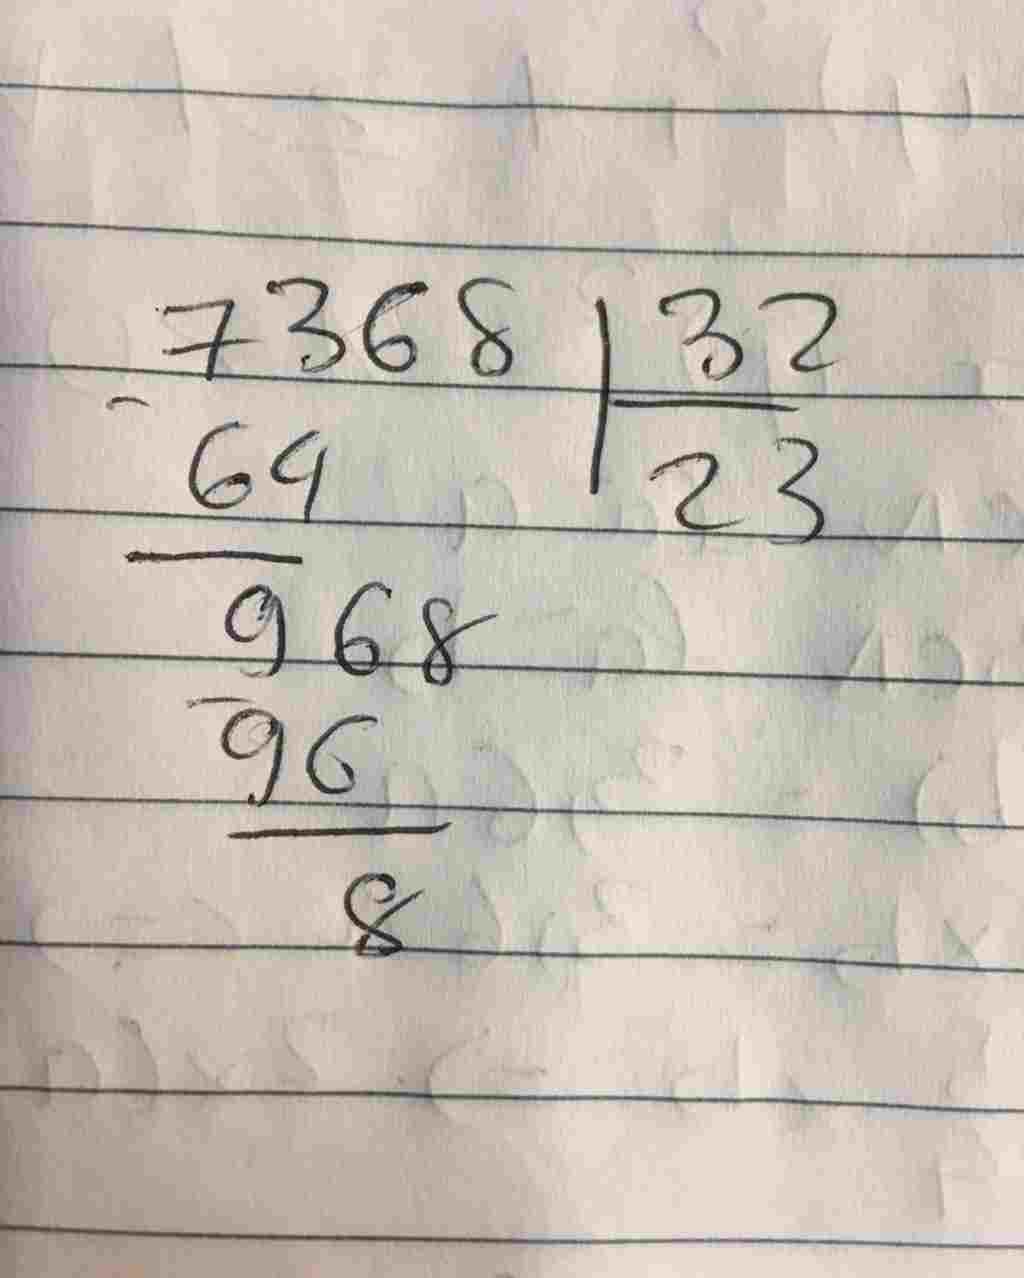 7368 32
- 64 23
968
- 96
8